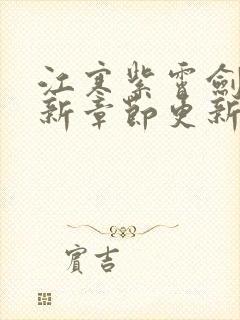 江寒紫霄劍
新章節更新
賓吉